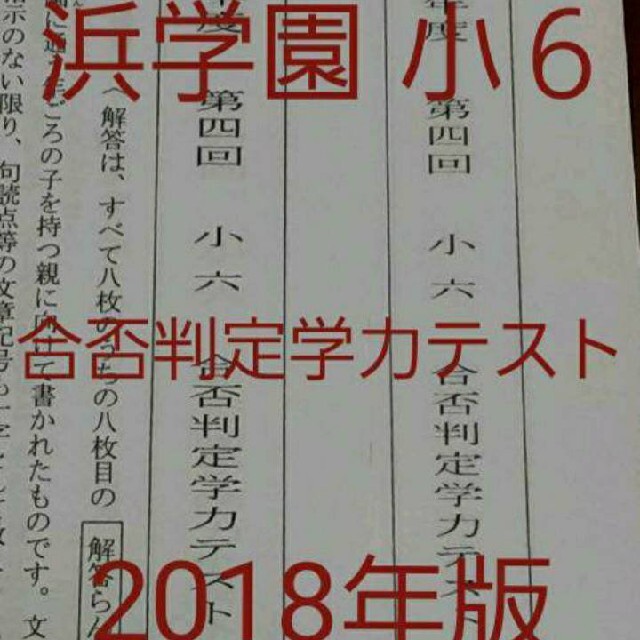 浜学園 小6
合否判定学力テスト
2018年版
年度 第四回 小六 合否判定学力テスト
年度 第四回 小六 合否判定学力テスト
解答は、すべて八枚のうちの八枚目の 解答らん
ごろの子を持つ親に向けて書かれたものです。 文
示のない限り、句読点等の文章記号も一字として数え